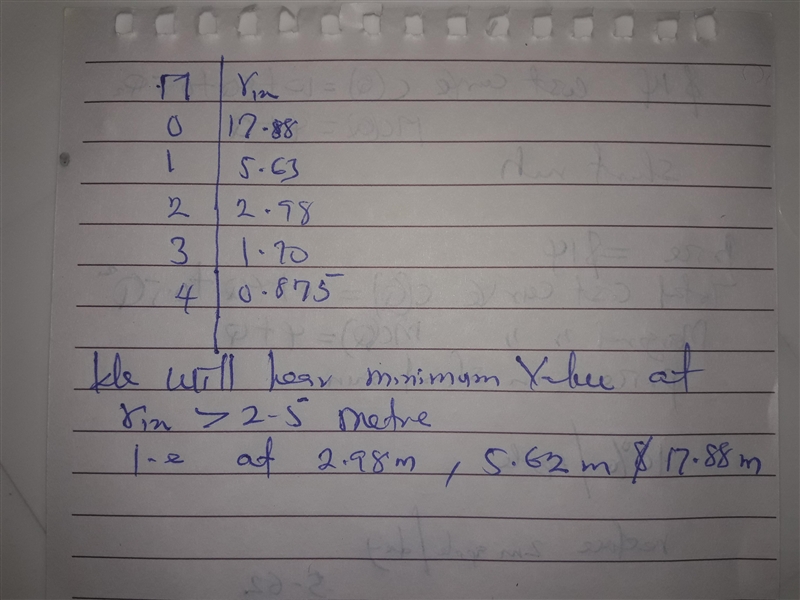 n r1n
0 17.88
1 5.63
2 2.98
3 1.70
4 0.875
We will hear minimum Value at
r1n > 2-5 metre
1-e at 2.98m, 5.62m & 17.88m